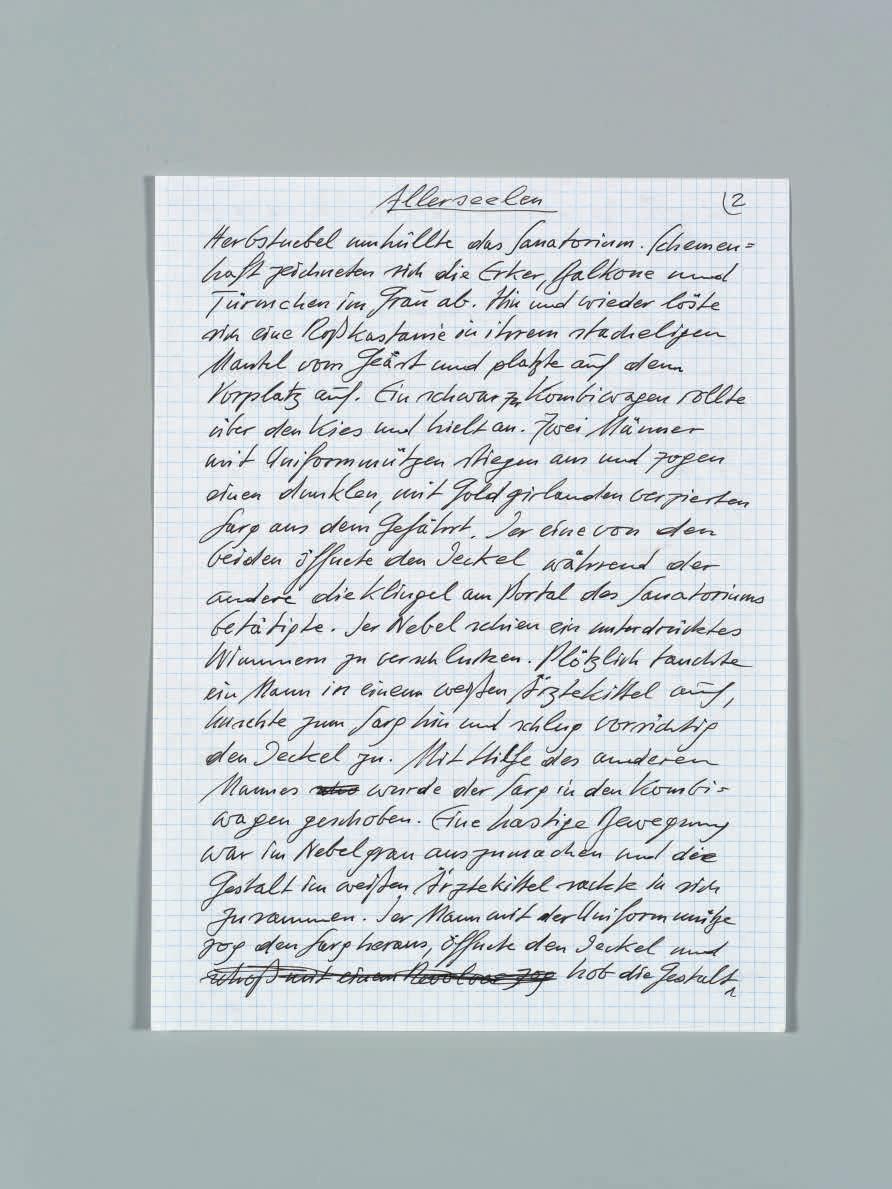 Allerseelen 2
Herbstnebel umhüllte das Sanatorium. Schemen=
haft zeichneten sich die Erker, Balkone und
Türmchen im Grau ab. Hin und wieder löste
sich eine Roßkastanie in ihrem stacheligen
Mantel vom Geäst und platzte auf dem
Vorplatz auf. Ein schwarzer Kombiwagen rollte
über den Kies und hielt an. Zwei Männer
mit Uniformmützen stiegen aus und zogen
einen dunklen, mit Goldgirlanden verzierten
Sarg aus dem Gefährt. Der eine von den
beiden öffnete den Deckel während der
andere die Klingel am Portal des Sanatoriums
betätigte. Der Nebel schien ein unterdrücktes
Wimmern zu verschlucken. Plötzlich tauchte
ein Mann in einem weißen Ärztekittel auf,
huschte zum Sarg hin und schlug vorsichtig
den Deckel zu. Mit Hilfe des anderen
Mannes wurde der Sarg in den Kombi=
wagen geschoben. Eine hastige Bewegung
war im Nebelgrau auszumachen und die
Gestalt im weißen Ärztekittel sackte in sich
zusammen. Der Mann mit der Uniformmütze
zog den Sarg heraus, öffnete den Deckel und
schoß mit einem Revolver zog hob die Gestalt